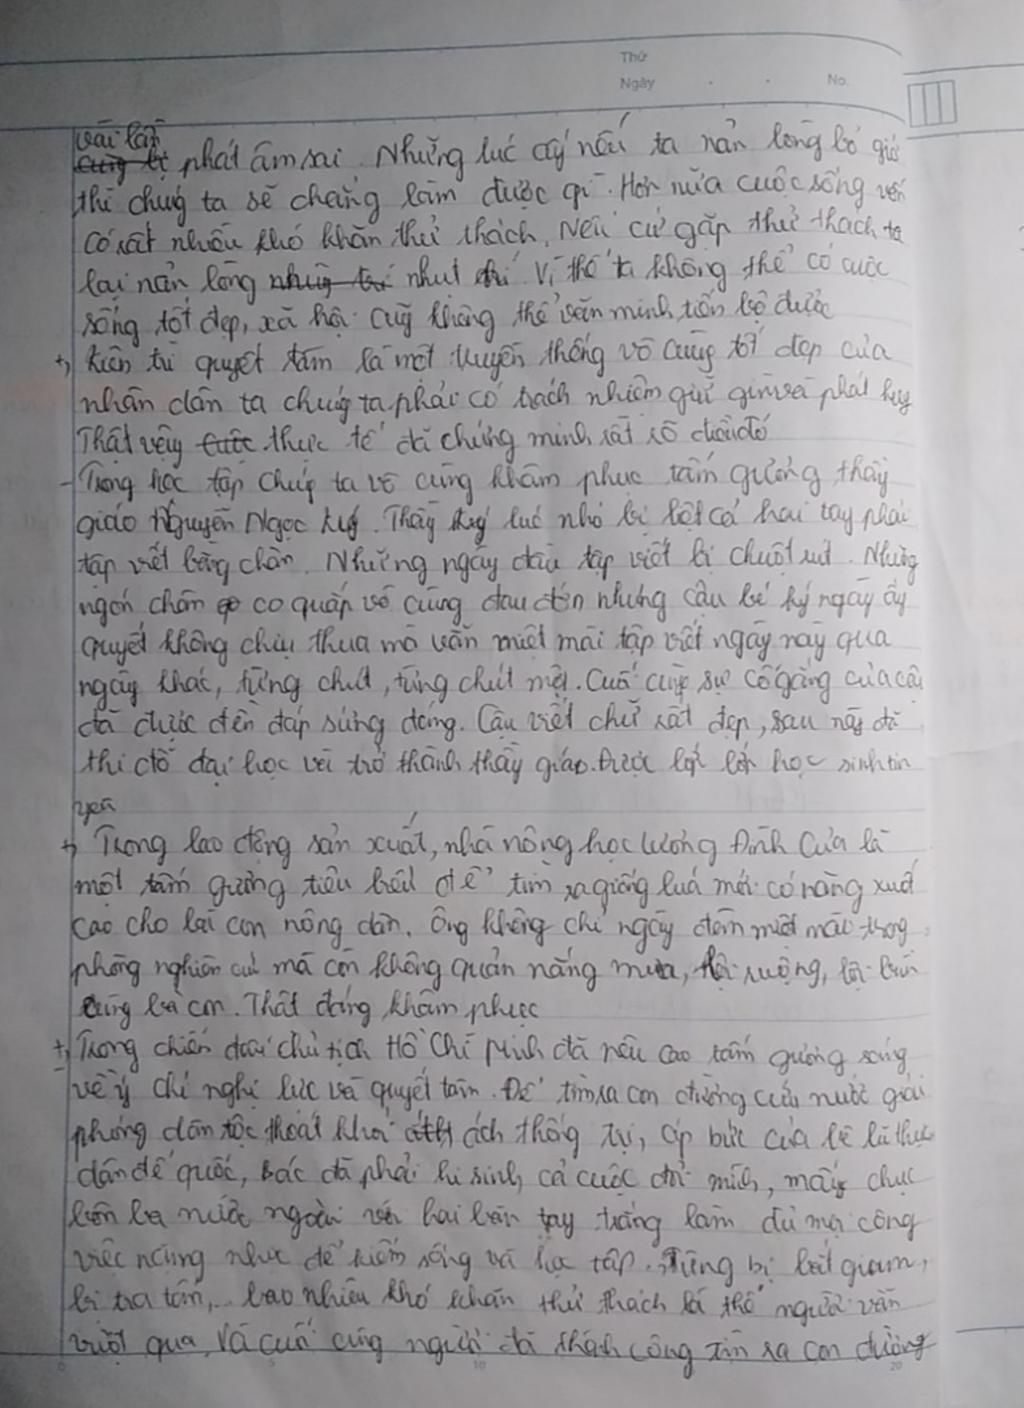 Thứ
Ngày
No.
vài lần
phát âm sai. Những lúc ấy nếu ta nản lòng bỏ giở
thì chúng ta sẽ chẳng làm được gì. Hơn nữa cuộc sống vốn
có rất nhiều khó khăn thử thách, Nếu cứ gặp thử thách ta
lại nản lòng như Vì thế ta không thể có cuộc
sống tốt đẹp, xã hội cũg không thể văn minh tiến bộ được
+, kiên trì quyết tâm là một truyền thống vô cùng tốt đẹp của
nhân dân ta chúng ta phải có trách nhiệm giữ gìn và phát huy
Thật vậy thực tế đã chứng minh rất rõ điều đó
- Trong học tập chúg ta vô cùng khâm phục tấm gương thầy
giáo Nguyễn Ngọc ký. Thầy ký lúc nhỏ bị liệt cả hai tay phải
tập viết bằng chân. Những ngày đầu tập viết bị chuột rút. Những
ngón chân co quắp vô cùng đau đớn nhưng cậu bé ký ngày ấy
quyết không chịu thua mà vẫn miệt mài tập viết ngày này qua
ngày khác, từng chút, từng chút một. Cuối cùng sự cố gắng của cậu
đã được đền đáp xứng đáng. Cậu viết chữ rất đẹp, sau này đã
thi đỗ đại học và trở thành thầy giáo. Được lớp lớp học sinh tin
yêu
+, Trong lao động sản xuất, nhà nông học Lương Đình Của là
một tấm gương tiêu biểu để tìm ra giống luá mới có năng xuất
cao cho bà con nông dân. Ông không chỉ ngày đêm miệt mài trong
phòng nghiên cứu mà còn không quản nắng mưa, lội ruộng, lội bùn
cùng bà con. Thật đáng khâm phục
+, Trong chiến đấu chủ tịch Hồ Chí Minh đã nêu cao tấm gương sáng
về ý chí nghị lực và quyết tâm. Để tìm ra con đường cứu nước giải
phóng dân tộc thoát khỏi ách thống trị, áp bức của bè lũ thực
dân đế quốc, Bác đã phải hi sinh cả cuộc đời mình, mấy chục
bôn ba nước ngoài với hai bàn tay trắng làm đủ mọi công
việc nặng nhọc để kiếm sống và học tập. Từng bị bắt giam,
bị tra tấn,... bao nhiêu khó khăn thử thách là thế người vẫn
vượt qua, Và cuối cùng người đã thành công tìm ra con đường
0 5 10 20